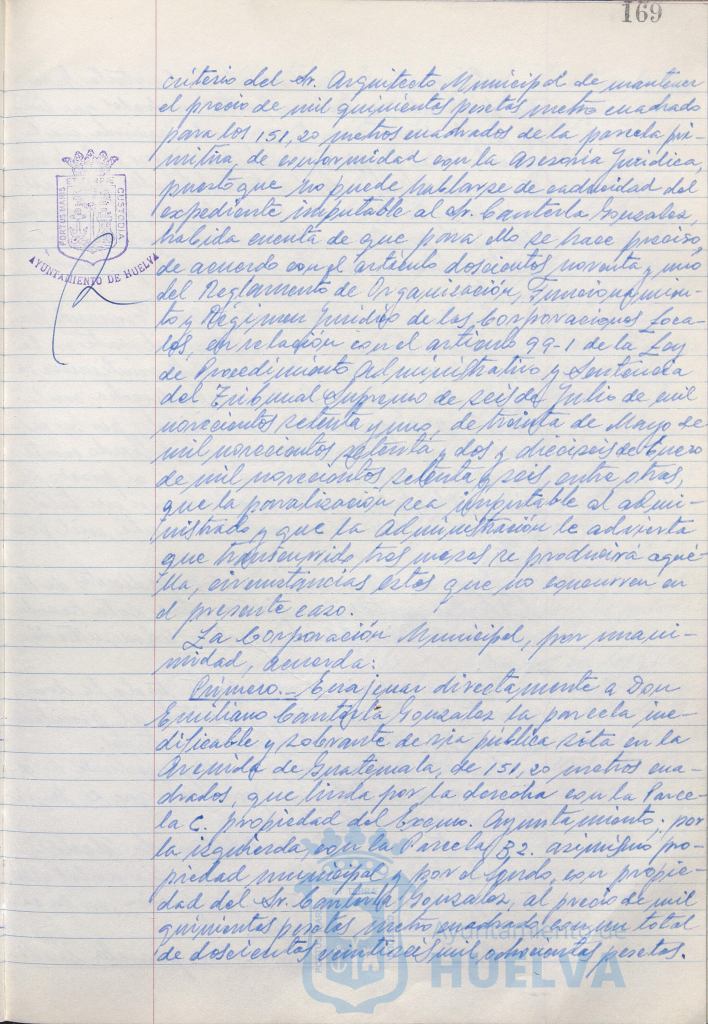 169
criterio del Sr. Arquitecto Municipal de mantener
el precio de mil quinientas pesetas metro cuadrado
para los 151,20 metros cuadrados de la parcela pri-
mitiva, de conformidad con la Asesoría Jurídica,
puesto que no puede hablarse de caducidad del
expediente imputable al Sr. Canterla Gonzalez,
habida cuenta de que para ello se hace preciso,
de acuerdo con el artículo doscientos noventa y uno
del Reglamento de Organización, Funcionamien-
to y Régimen Jurídico de las Corporaciones Loca-
les, en relación con el artículo 99-1 de la Ley
de Procedimiento Administrativo y Sentencia
del Tribunal Supremo de seis de Julio de mil
novecientos setenta y uno, de treinta de Mayo de
mil novecientos setenta y dos y dieciseis de Enero
de mil novecientos setenta y seis, entre otras,
que la paralización sea imputable al admi-
nistrado y que la Administración le advierta
que transcurrido tres meses se producirá aqué-
lla, circunstancias estas que no concurren en
el presente caso.
La Corporación Municipal, por unani-
midad, acuerda:
Primero.- Enajenar directamente a Don
Emiliano Canterla Gonzalez la parcela ine-
dificable y sobrante de vía pública sita en la
Avenida de Guatemala, de 151,20 metros cua-
drados, que linda por la derecha con la Parce-
la C. propiedad del Excmo. Ayuntamiento; por
la izquierda, con la Parcela B2. asimismo pro-
piedad municipal y por el fondo, con propie-
dad del Sr. Canterla Gonzalez, al precio de mil
quinientas pesetas metro cuadrado con un total
de doscientas veintiseis mil ochocientas pesetas.
PORTUS MARIS
CUSTODIA
AYUNTAMIENTO DE HUELVA
Ayuntamiento de
HUELVA